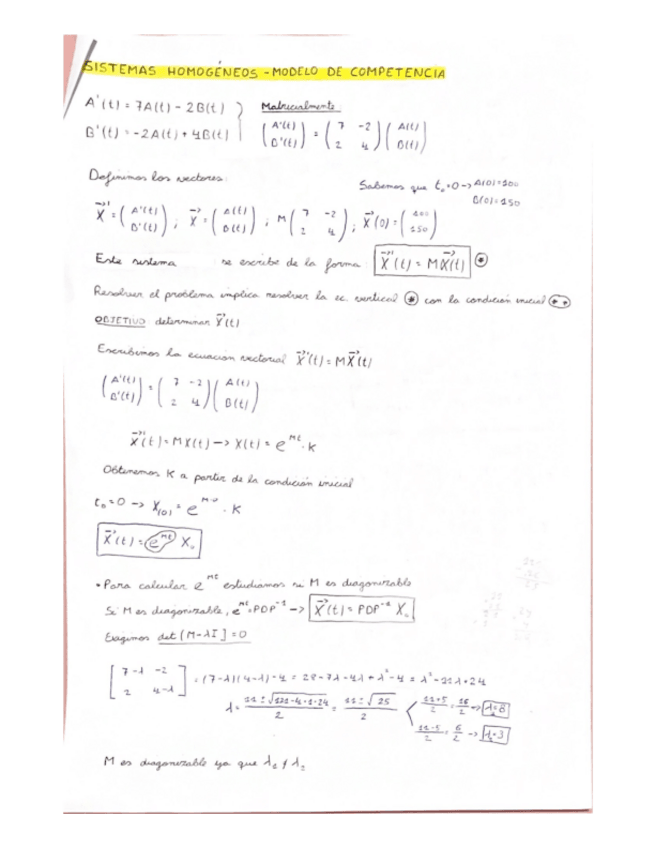 SISTEMAS HOMOGÉNEOS - MODELO DE COMPETENCIA
A'(t) = 7A(t) - 2B(t) } Matricialmente:
B'(t) = -2A(t) + 4B(t)
(A'(t) B'(t)) = (7 -2 2 4)(A(t) B(t))
Definimos los vectores:
Sabemos que t₀=0 → A(0)=100
B(0)=150
X⃗' = (A'(t) B'(t)) ; X⃗ = (A(t) B(t)) ; M (7 -2 2 4) ; X⃗(0) = (100 150)
Este sistema se escribe de la forma: X⃗'(t) = MX⃗(t) (*)
Resolver el problema implica resolver la ec. vertical (*) con la condición inicial (**)
OBJETIVO: determinar X⃗(t)
Escribimos la ecuación vectorial X⃗'(t) = MX⃗(t)
(A'(t) B'(t)) = (7 -2 2 4)(A(t) B(t))
X⃗'(t) = MX(t) → X(t) = e^Mt · K
Obtenemos K a partir de la condición inicial
t₀=0 → X(0) = e^M·0 · K
X⃗'(t) = e^Mt X₀
• Para calcular e^Mt estudiamos si M es diagonizable
Si M es diagonizable, e^Mt = PDP⁻¹ → X⃗(t) = PDP⁻¹ X₀
Exigimos det [M-λI] = 0
[7-λ -2 2 4-λ] = (7-λ)(4-λ) - 4 = 28 - 7λ - 4λ + λ² - 4 = λ² - 11λ + 24
λ = (11 ± √(121-4·1·24))/2 = (11 ± √25)/2
(11+5)/2 = 16/2 → λ₁=8
(11-5)/2 = 6/2 → λ₂=3
M es diagonizable ya que λ₁ ≠ λ₂